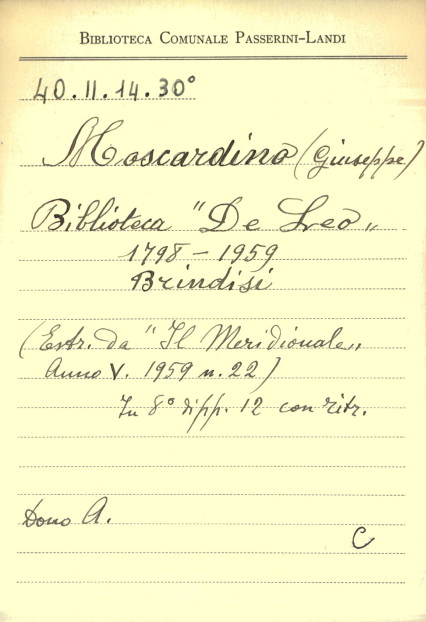 BIBLIOTECA COMUNALE PASSERINI-LANDI
40.II.14.30°
Moscardino (Giuseppe)
Biblioteca "De Leo"
1798 - 1959
Brindisi
(Estr. da "Il Meridionale"
Anno V. 1959 n. 22)
In 8° di pp. 12 con ritr.
Dono A.
C